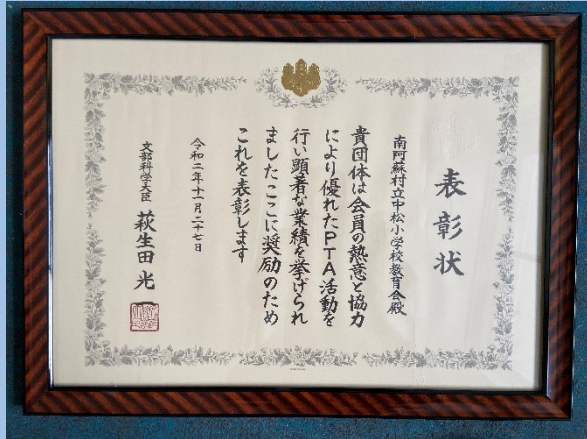 表彰状
南阿蘇村立中松小学校教育会殿
貴団体は会員の熱意と協力
により優れたPTA活動を
行い顕著な業績を挙げられ
ましたここに奨励のため
これを表彰します
令和二年十一月二十七日
文部科学大臣 萩生田光一